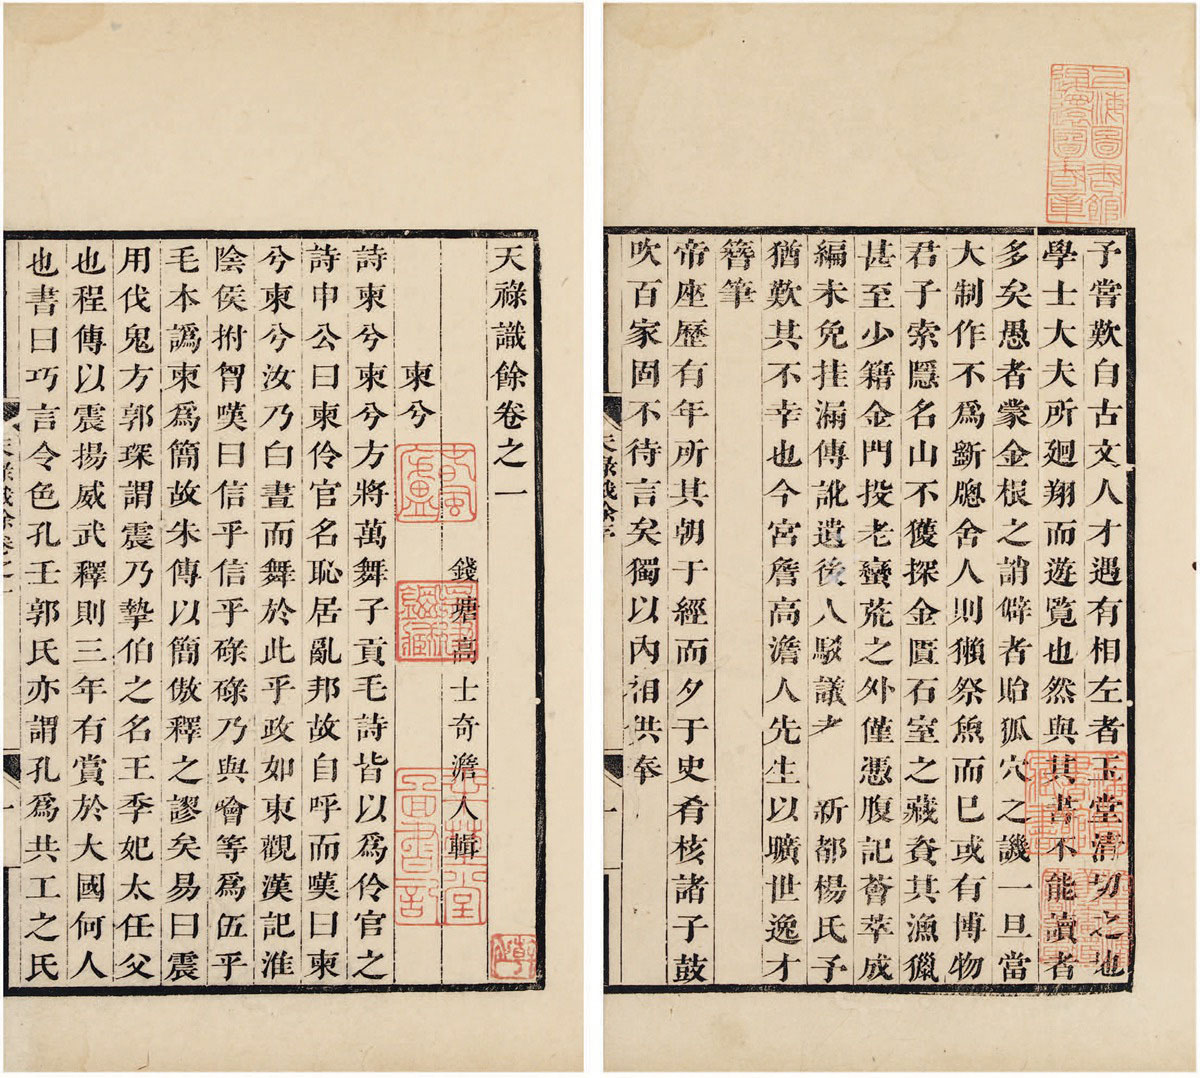 上海圖書館
退還圖書章
予嘗歎自古文人才遇有相左者玉堂清切之地
學士大夫所廻翔而遊覧也然與其書不能讀者
多矣愚者蒙金根之誚僻者貽狐穴之譏一旦當
大制作不爲斵牕舍人則獺祭魚而已或有博物
君子索隱名山不獲探金匱石室之藏資其漁獵
甚至少籍金門投老蠻荒之外僅憑腹記薈萃成
編未免挂漏傳訛遺後人駁議 新都楊氏予
猶歎其不幸也今宮詹高澹人先生以曠世逸才
簪筆
帝座歷有年所其朝于經而夕于史肴核諸子鼓
吹百家固不待言矣獨以內奉
天祿識餘卷之一
錢塘高士奇澹人輯
柬兮
詩柬兮柬兮方將萬舞子貢毛詩皆以爲伶官之
詩申公曰柬伶官名恥居亂邦故自呼而嘆曰柬
兮柬兮汝乃白晝而舞於此乎政如東觀漢記淮
陰侯拊胷嘆曰信乎信乎碌碌乃與噲等爲伍乎
毛本譌柬爲簡故朱傳以簡傲釋之謬矣易曰震
用伐鬼方郭琛謂震乃摯伯之名王季妃太任父
也程傳以震揚威武釋則三年有賞於大國何人
也書曰巧言令色孔壬郭氏亦謂孔爲共工之氏